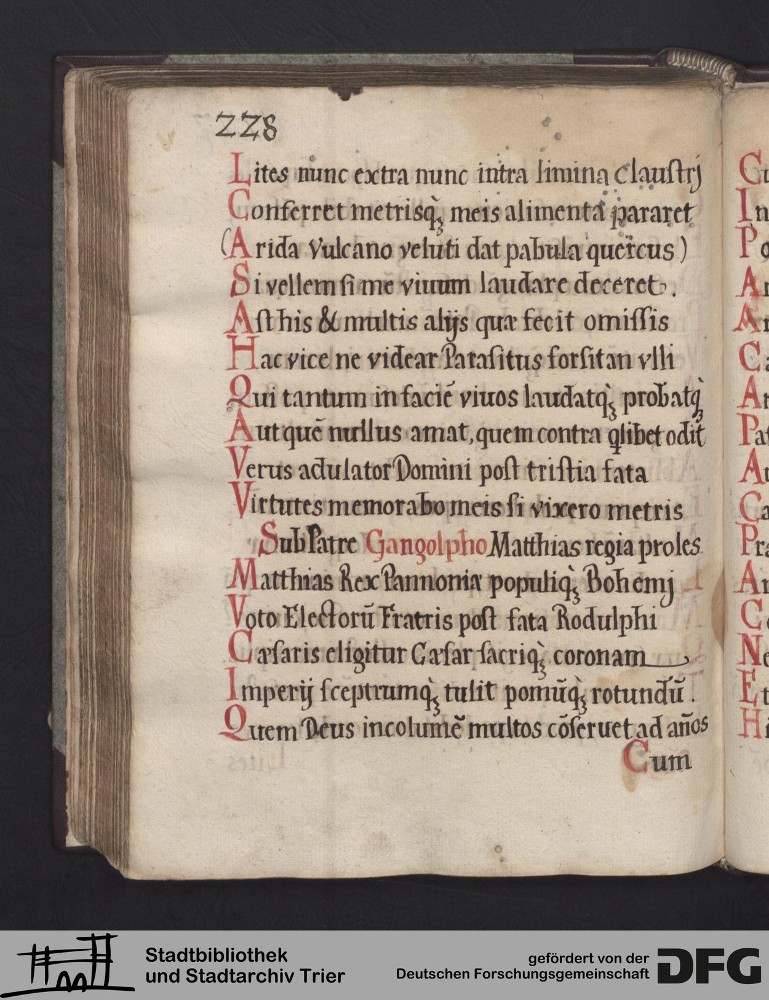 228
Lites nunc extra nunc intra limina claustrj
Conferret metrisq̀ꝫ meis alimenta pararet
(Arida Vulcano veluti dat pabula quercus)
Si vellem si me viuum laudare deceret.
Ast his & multis alijs quæ fecit omissis
Hac vice ne videar Parasitus forsitan vlli
Qui tantum in faciē viuos laudatq̀ꝫ probatq̀ꝫ
Aut quē nullus amat, quem contra qlibet odit
Verus adulator Domini post tristia fata
Virtutes memorabo meis si vixero metris
Sub Patre Gangolpho Matthias regia proles
Matthias Rex Pannoniæ populiq̀ꝫ Bohemj
Voto Electorū Fratris post fata Rodulphi
Cæsaris eligitur Cæsar sacriq̀ꝫ coronam
Imperij sceptrumq̀ꝫ tulit pomūq̀ꝫ rotundū.
Quem Deus incolumē multos cōseruet ad años
Cum
C
I
P
A
A
C
A
P
A
C
P
A
C
N
E
H
Stadtbibliothek
und Stadtarchiv Trier
gefördert von der
Deutschen Forschungsgemeinschaft
DFG